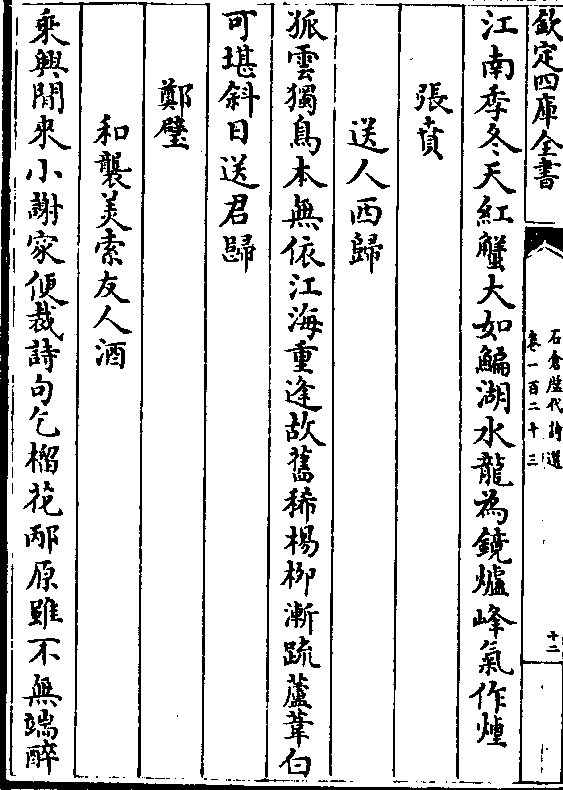 欽定四庫全書
石倉歷代詩選
卷一百二十三
十二
江南季冬天紅蟹大如鯿湖水龍為鏡爐峰氣作煙
張賁
送人西歸
孤雲獨鳥本無依江海重逢故舊稀楊柳漸䟽蘆葦白
可堪斜日送君歸
鄭璧
和襲美索友人酒
乘興閒來小謝家便裁詩句乞榴花邴原雖不無端醉